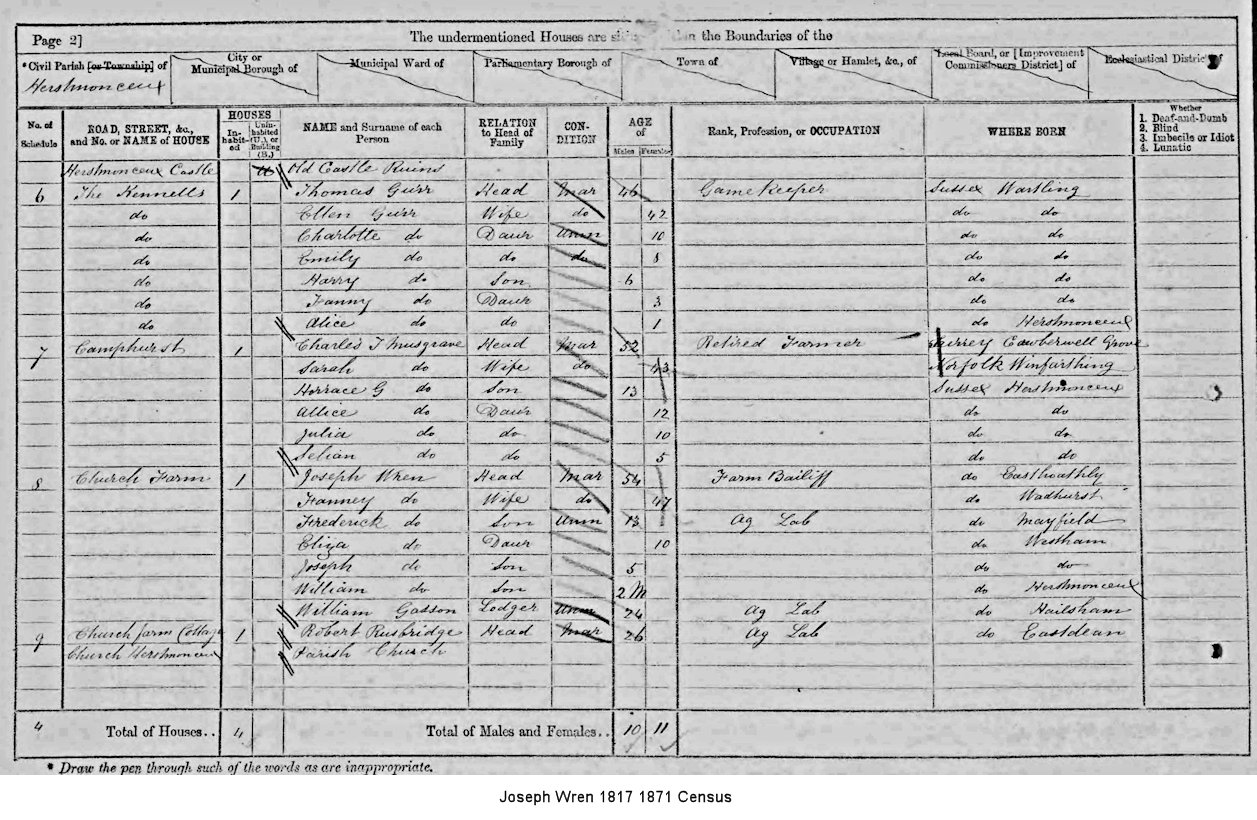 Page 2] The undermentioned Houses are within the Boundaries of the
*Civil Parish [or Township] of City or Municipal Borough of Municipal Ward of Parliamentary Borough of Town of Village or Hamlet, &c., of Local Board, or [Improvement Commissioners District] of Ecclesiastical District of
Herstmonceux
No. of Schedule ROAD, STREET, &c., and No. or NAME of HOUSE HOUSES Inhabited Uninhabited (U.), or Building (B.) NAME and Surname of each Person RELATION to Head of Family CONDITION AGE of Males Females Rank, Profession, or OCCUPATION WHERE BORN Whether 1. Deaf-and-Dumb 2. Blind 3. Imbecile or Idiot 4. Lunatic
Herstmonceux Castle U Old Castle Ruins
6 The Kennells 1 Thomas Gurr Head Mar 46 Game Keeper Sussex Wartling
do Ellen Gurr Wife do 42 do do
do Charlotte do Daur Unm 10 do do
do Emily do do do 8 do do
do Harry do Son 6 do do
do Fanny do Daur 3 do do
do Alice do do 1 do Herstmonceux
7 Camphurst 1 Charles T Musgrave Head Mar 52 Retired Farmer Surrey Camberwell Grove
Sarah do Wife do 43 Norfolk Winfarthing
Horrace G do Son 13 Sussex Herstmonceux
Allice do Daur 12 do do
Julia do do 10 do do
do do 5 do do
8 Church Farm 1 Joseph Wren Head Mar 54 Farm Bailiff do Easthoathly
Fanney do Wife do 47 do Wadhurst
Frederick do Son Unm 13 Ag Lab do Mayfield
Eliza do Daur 10 do Westham
Joseph do Son 5 do do
William do Son 2 M do Herstmonceux
William Gasson Lodger Unm 24 Ag Lab do Hailsham
9 Church farm Cottage 1 Robert Rusbridge Head Mar 26 Ag Lab do Eastdean
Church Herstmonceux Parish Church
4 Total of Houses.. 4 Total of Males and Females.. 10 11
* Draw the pen through such of the words as are inappropriate.
Joseph Wren 1817 1871 Census